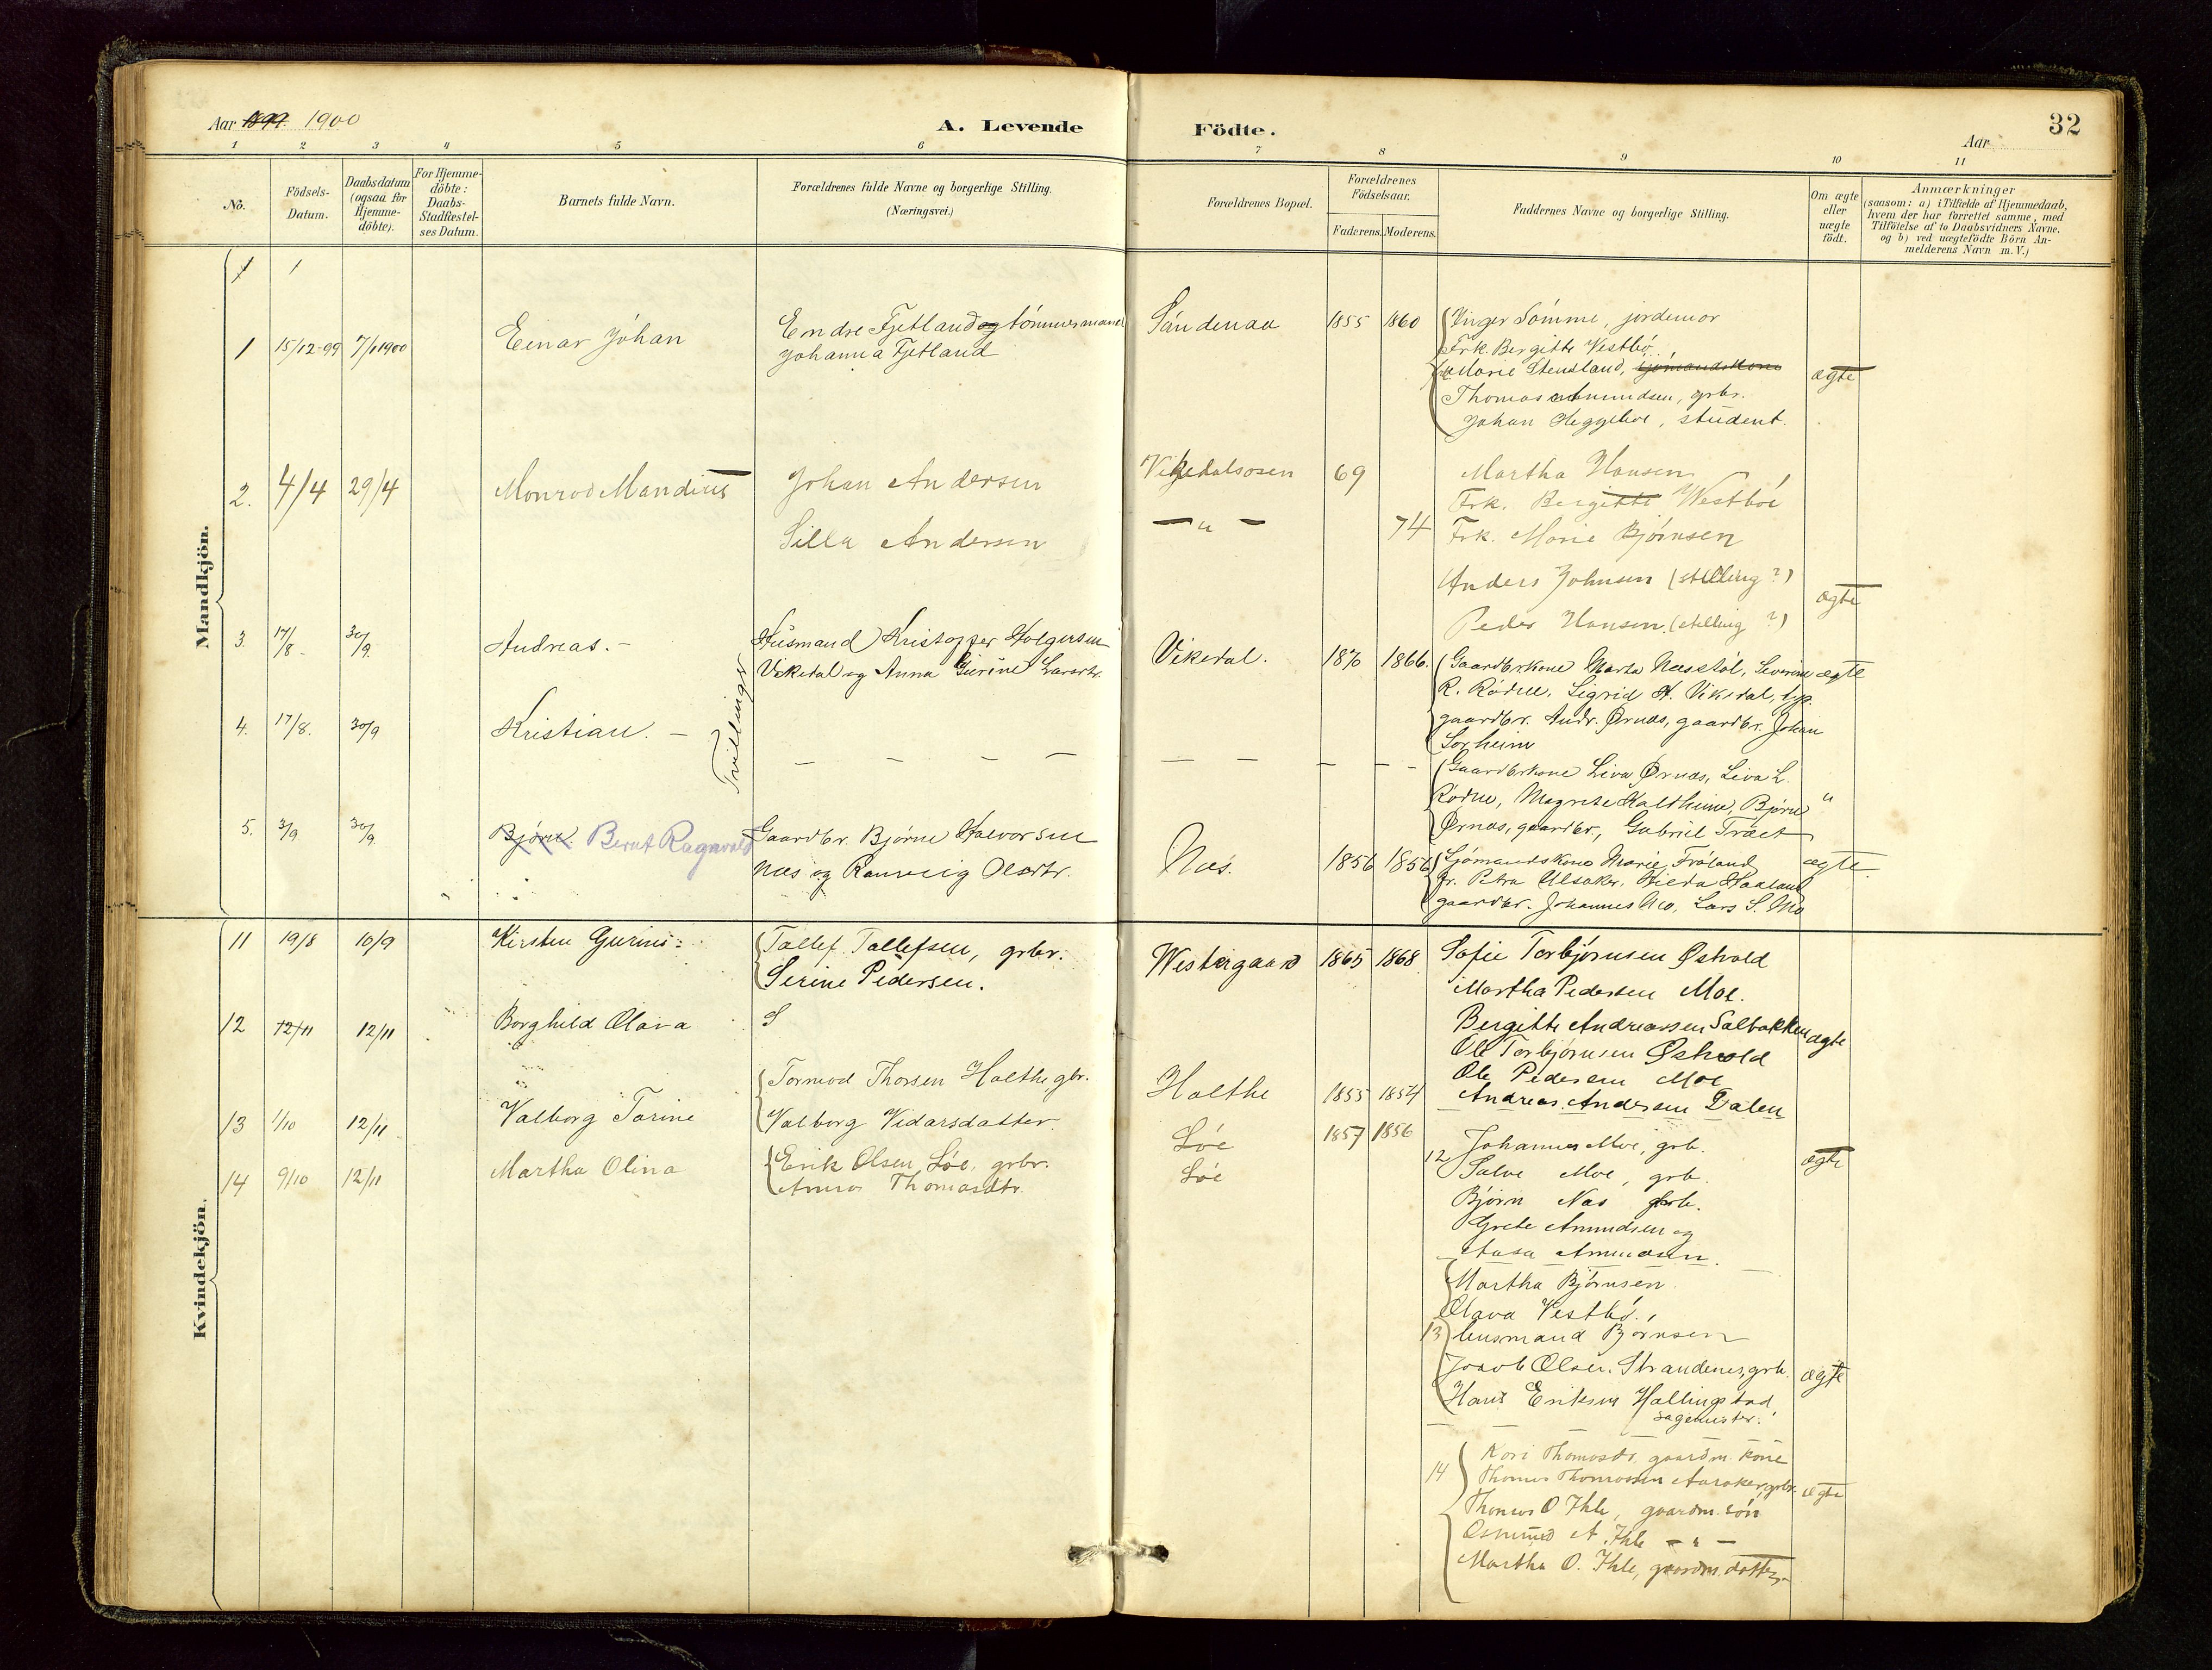 Aar 1899 1900
A. Levende
Födte.
Aar
32
1 2 3 4 5 6 7 8 9 10 11
No.
Födsels-
Datum.
Daabsdatum
(ogsaa for
Hjemme-
döbte).
For Hjemme-
döbte:
Daabs-
Stadfæstel-
ses Datum.
Barnets fulde Navn.
Forældrenes fulde Navne og borgerlige Stilling.
(Næringsvei.)
Forældrenes Bopæl.
Forældrenes
Födselsaar.
Faderens. Moderens.
Faddernes Navne og borgerlige Stilling.
Om ægte
eller
uægte
födt.
Anmærkninger
(saasom: a) i Tilfælde af Hjemmedaab,
hvem der har forrettet samme, med
Tilföielse af to Daabsvidners Navne.
og b) ved uægtefödte Börn An-
melderens Navn m. V.)
Mandkjön.
1 1
1 15/12-99 7/1 1900 Einar Johan
Endre Fjetland og tömmermand
Johanna Fjetland
Sandenaa 1855 1860
Inger Sömme, jordemor
Frk. Bergitte Vestbö
Marie Stensland, sjömandskone
Thomas Amundsen, grbr.
Johan Heggeboe, student.
ægte
2. 4/4 29/4 Monrad Mandius
Johan Andersen
Silla Andersen
Vikedalsosen 69
— " — 74
Martha Hansen
Frk. Bergitte Westböe
Frk. Marie Bjørnsen
Anders Johnsen (stilling?)
Peder Hansen (stilling?)
ægte
3. 17/8 30/9 Andreas. -
Husmand Kristoffer Holgersen
Vikedal og Anna Gurine Larsdtr.
Vikedal. 1870 1866.
Gaardbrkone Marta Næsstöl, Severine
R. Rödne, Sigrid A. Vikedal, tjp.
gaardbr. Andr. Ørnæs, gaardbr. Johan
Sörheim
ægte
4. 17/8. 30/9 Kristian. -
Tvillinger
— — — —
— — — — —
Gaardbrkone Liva Ørnæs, Liva L.
Rødne, Magrete Kaltheim, Bjørne
Ørnæs, gaardbr., Gabriel Træet
"
5. 3/9 30/9 Bjørne. Bernt Ragnvald
Gaardbr. Bjørne Halvorsen
Næs og Ranveig Olsdtr.
Næs. 1856 1856
Sjömandskone Marie Fröland
fr. Petra Ulsaker, Hilda Haaland
gaardbr. Johannes Mo, Lars S. Mo
ægte.
Kvindekjön.
11 19/8 10/9 Kirsten Gurine
Tollef Tollefsen, grbr.
Serine Pedersen.
Westergaard 1865 1868
Sofie Torbjørnsen Østvold
Martha Pedersen Moe.
Bergitte Andreassen Salbakken
Ole Torbjørnsen Østvold
Ole Pedersen Moe
Andreas Andersen Dalen
ægte
12 12/11 12/11 Borghild Olava
S
Tormod Thorsen Holthe, gbr.
Valborg Vidarsdatter.
Holthe 1855 1854
12
Johannes Moe, grb.
Salve Moe, grb.
Bjørn Næs grb.
Grete Amundsen og
Aasa Amundsen.
ægte
13 1/10 12/11 Valborg Tarine
Löe 1857 1856
13
Martha Bjørnsen
Olava Vestbö.,
lensmand Bjørnsen
Jacob Olsen Strandenes, grb.
Hans Eriksen Hallingstad,
sagemester.
ægte
14 9/10 12/11 Martha Olina
Erik Olsen Löe, grbr.
Anna Thomasdtr.
Löe
14
Kari Thomasdr, gaardm. kone
Thomas Thomassen Aaraker, grbr.
Thomas O Ihle, gaardm. sön
Osmund A. Ihle — " —
Martha O. Ihle, gaardm. datter.
ægte